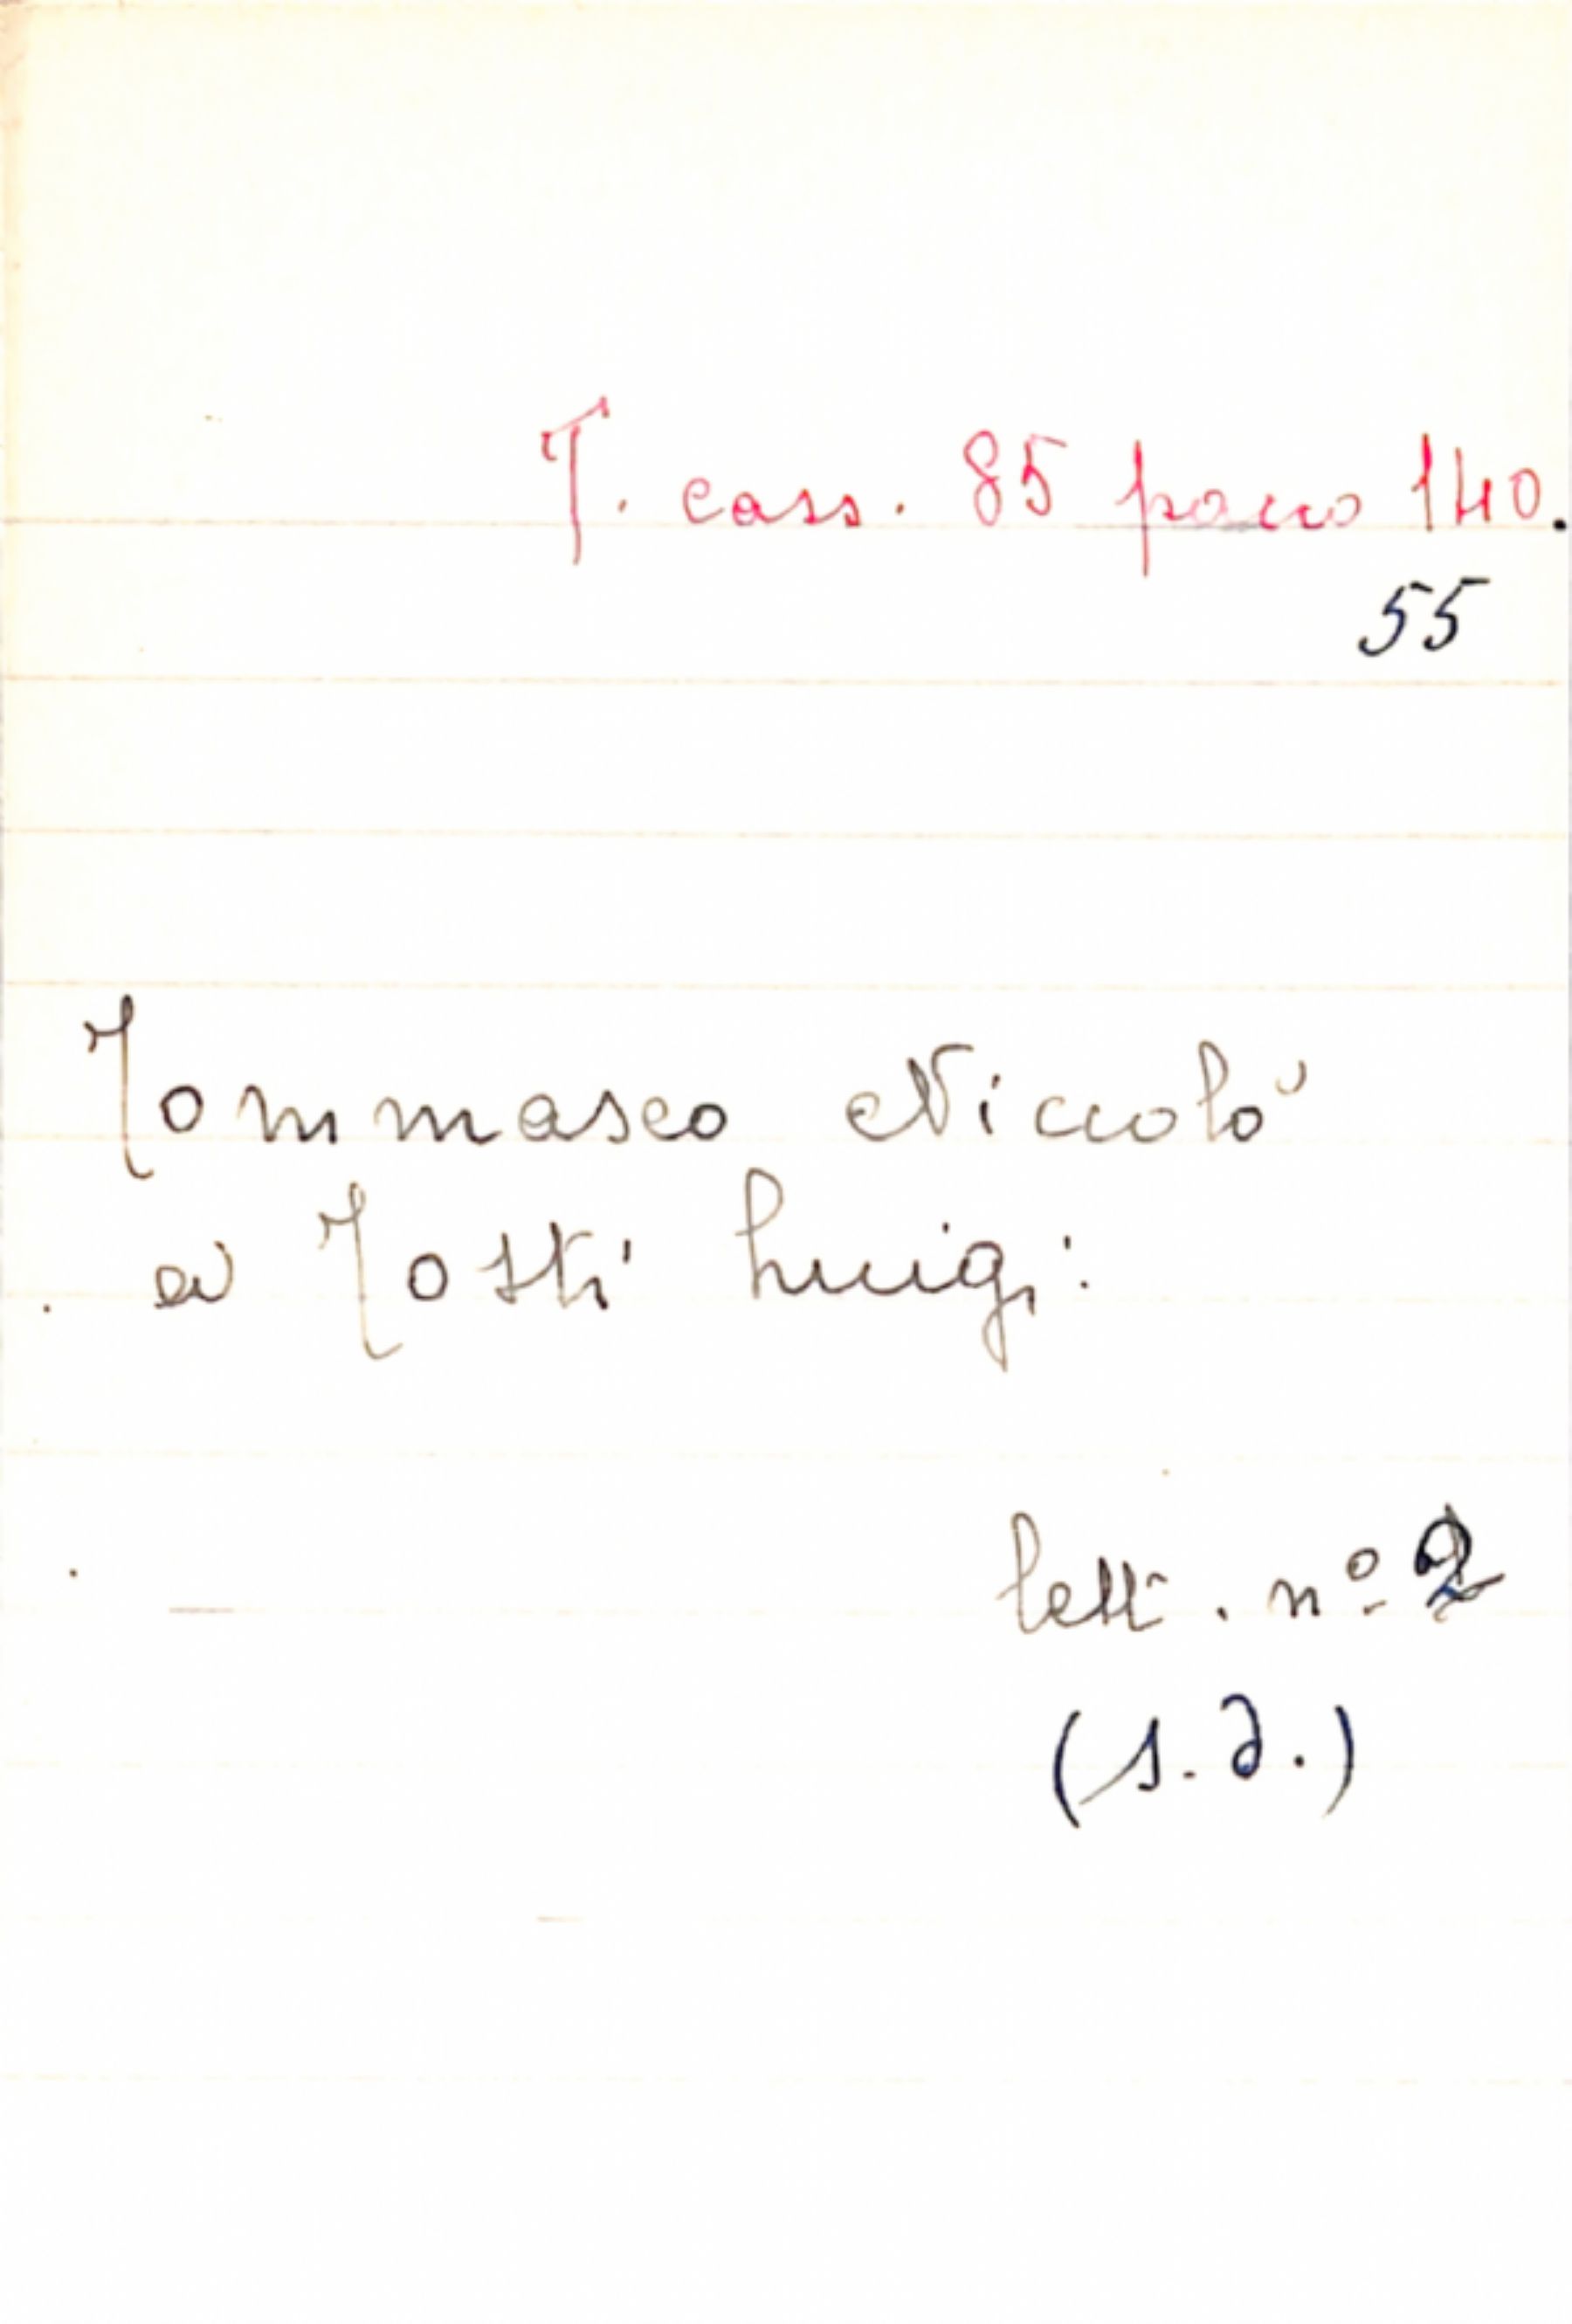 T. cass. 85 pacco 140.
55
Tommaseo Niccolò
a Tosti Luigi
lett. n° 2
(s.d.)